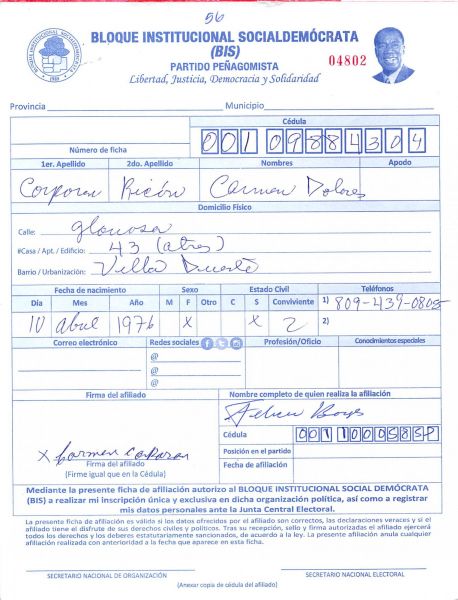 56
BLOQUE INSTITUCIONAL SOCIALDEMÓCRATA
(BIS)
PARTIDO PEÑAGOMISTA
04802
Libertad, Justicia, Democracia y Solidaridad
Provincia Municipio
Número de ficha
Cédula
001 0988430 4
1er. Apellido 2do. Apellido Nombres Apodo
Corporan Ricón Carmen Dolores
Domicilio Físico
Calle: gloriosa
#Casa / Apt. / Edificio: 43 (atres)
Barrio / Urbanización: Villa Duarte
Fecha de nacimiento Sexo Estado Civil Teléfonos
Día Mes Año M F Otro C S Conviviente 1) 809-439-0805
10 abril 1976 X X 2 2)
Correo electrónico Redes sociales Profesión/Oficio Conocimientos especiales
@
@
@
Firma del afiliado Nombre completo de quien realiza la afiliación
X Carmen Corporan
Firma del afiliado
(Firme igual que en la Cédula)
Cédula
Posición en el partido
Fecha de afiliación
Mediante la presente ficha de afiliación autorizo al BLOQUE INSTITUCIONAL SOCIAL DEMÓCRATA
(BIS) a realizar mi inscripción única y exclusiva en dicha organización política, así como a registrar
mis datos personales ante la Junta Central Electoral.
La presente ficha de afiliación es válida si los datos ofrecidos por el afiliado son correctos, las declaraciones veraces y si el
afiliado tiene el disfrute de sus derechos civiles y políticos. Tras su recepción, sello y firma autorizadas el afiliado ejercerá
todos los derechos y los deberes estatutariamente sancionados, de acuerdo a la ley. La presente afiliación anula cualquier
afiliación realizada con anterioridad a la fecha que aparece en esta ficha.
SECRETARIO NACIONAL DE ORGANIZACIÓN SECRETARIO NACIONAL ELECTORAL
(Anexar copia de cédula del afiliado)